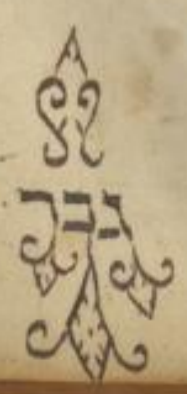 גבר